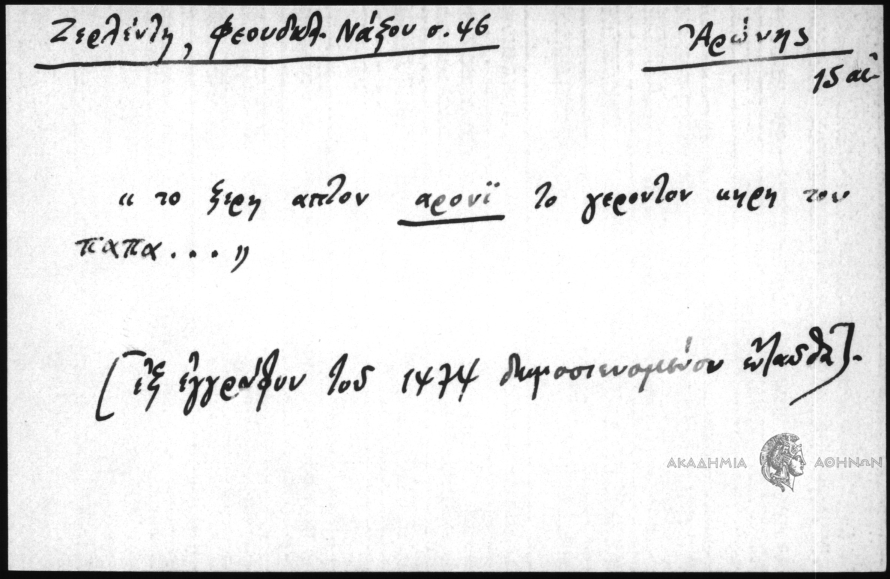 Ζερλέντη, Φεουδαλ. Νάξου σ. 46
Ἀρώνης
15 αἰ.
« το ξερη απτον αρονϊ το γεροντον κηρη του
παπα . . . . »
[ἐξ ἐγγράφου τοῦ 1474 δημοσιευομένου ἐνταῦθα].
ΑΚΑΔΗΜΙΑ ΑΘΗΝΩΝ